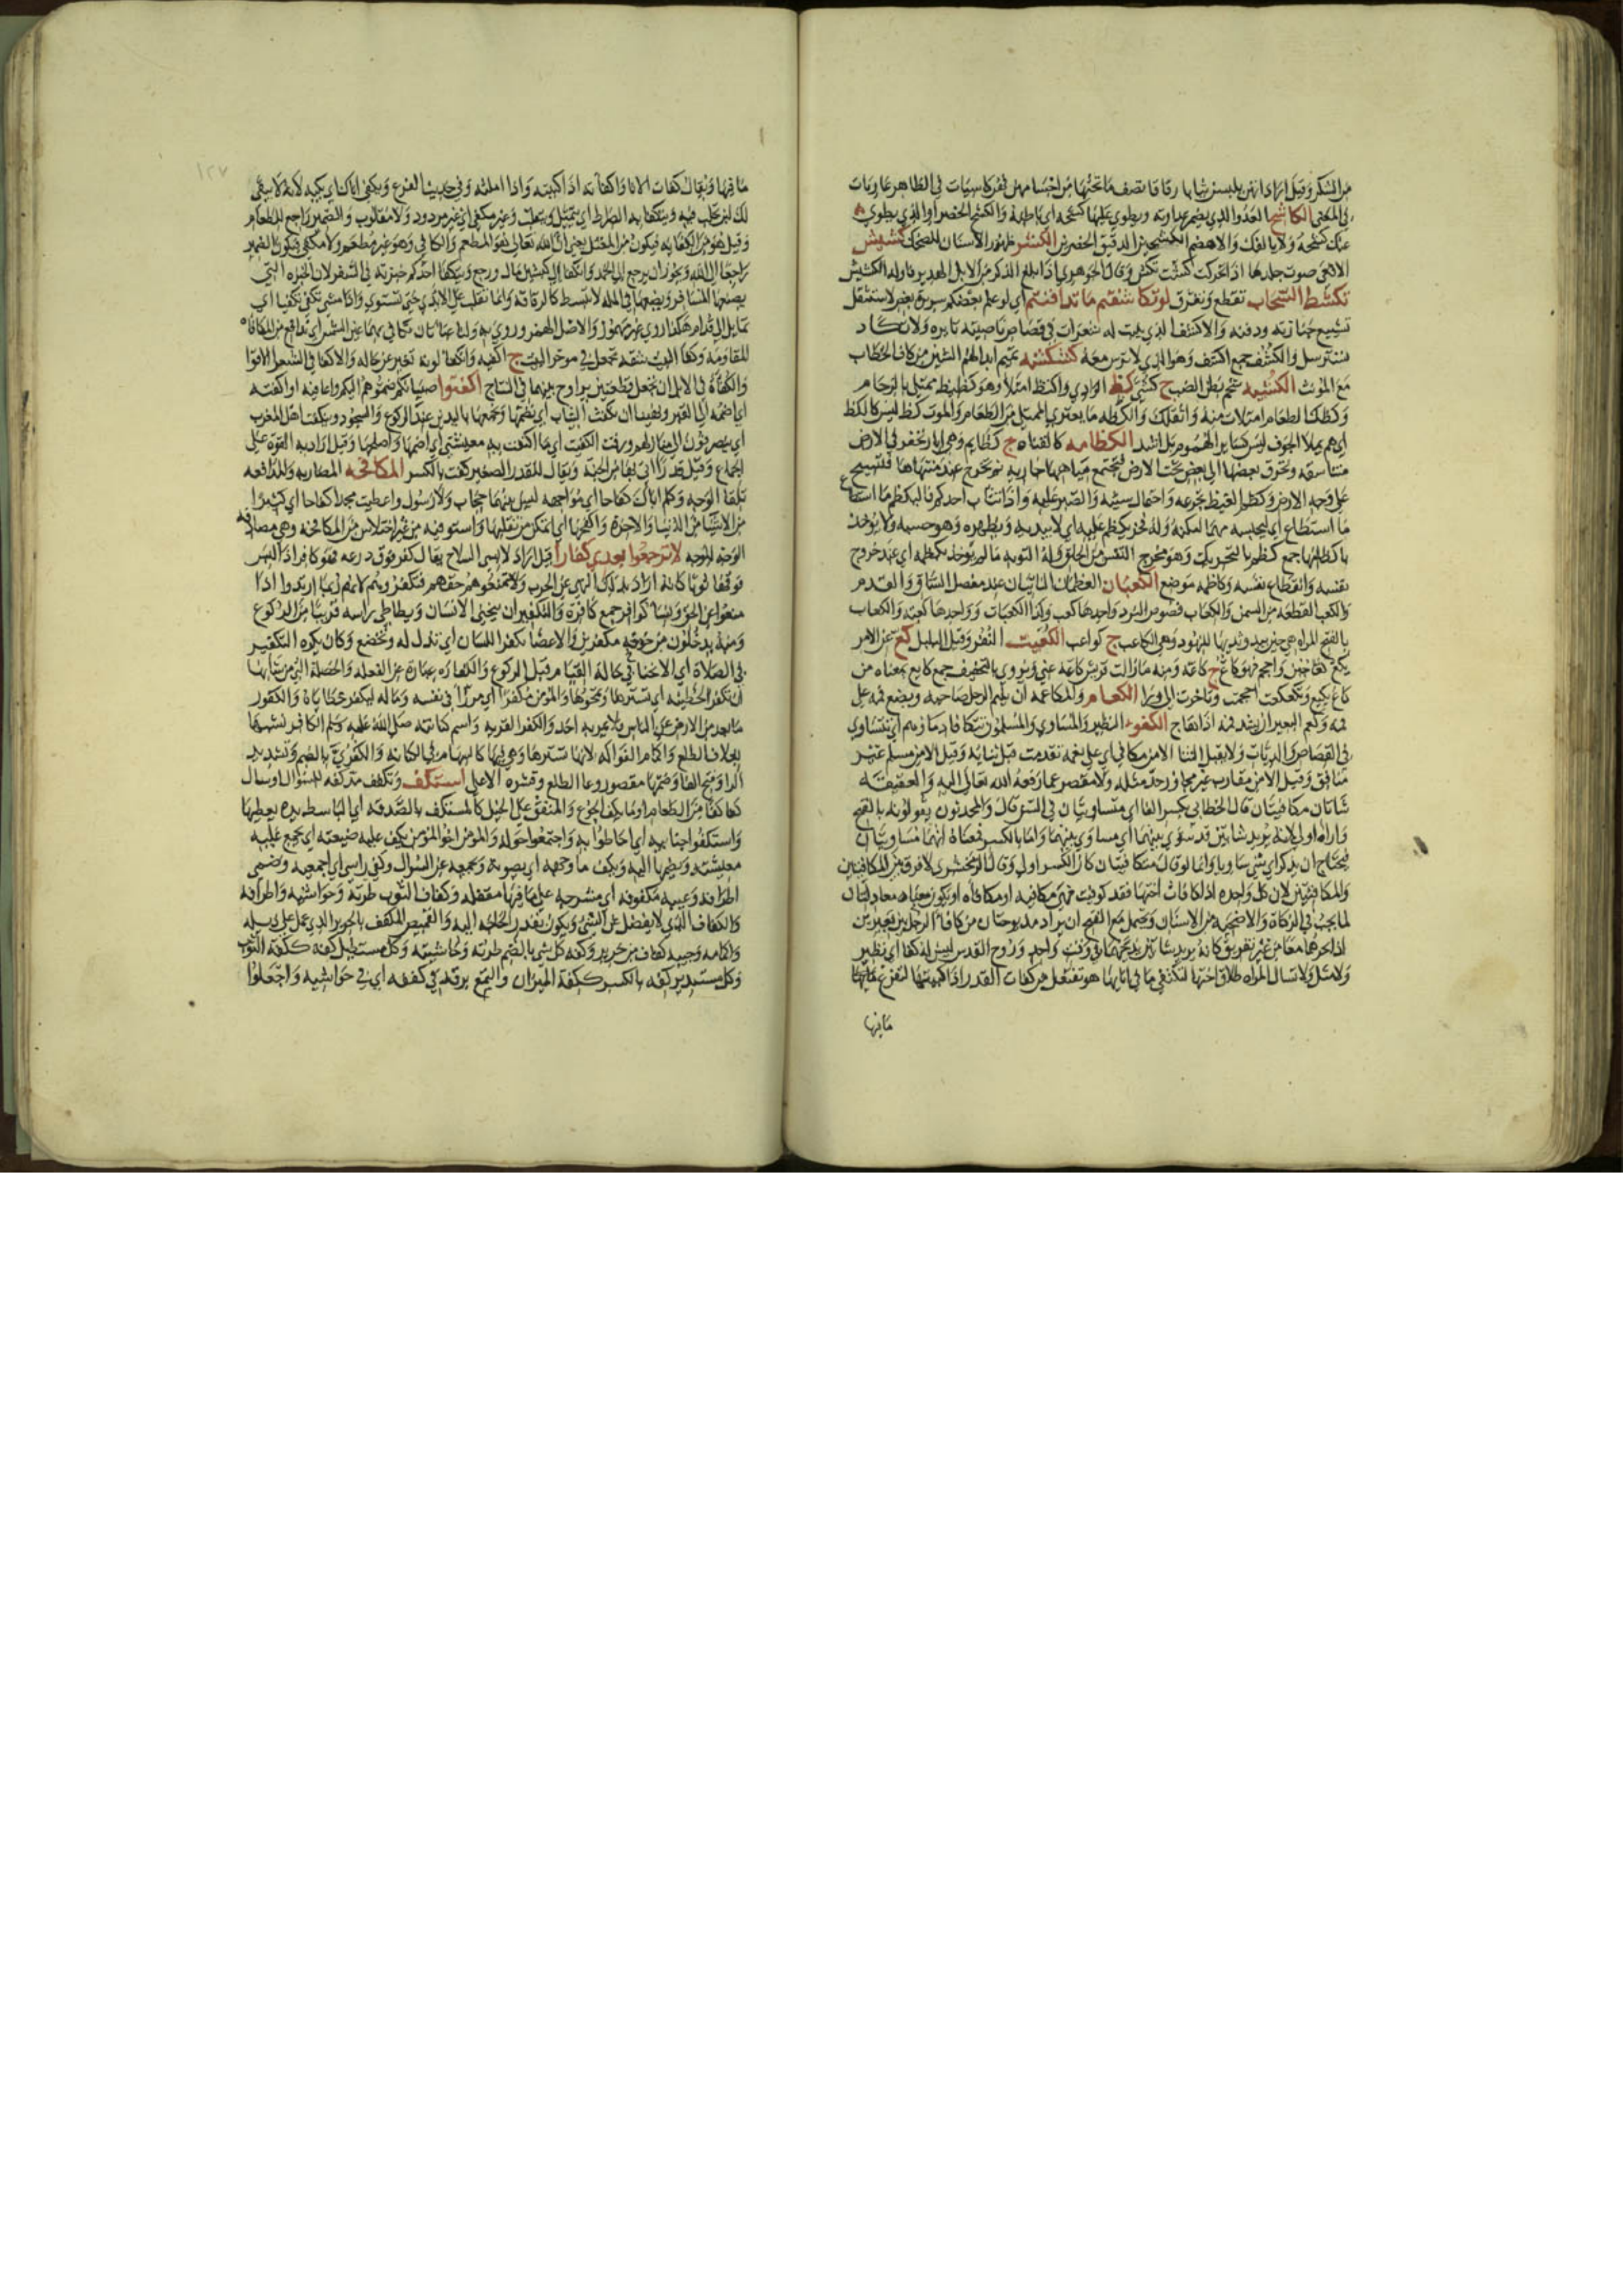 من الشكر وقيل اراد انهن يلبسن ثيابا رقاقا تصف ما تحتها من اجسامهن فهن كاسيات في الظاهر عاريات
في المعنى الكاشح العدو الذي يضمر عداوته ويطوي عليها كشحه اي باطنه والكشح الخصر او الذي يطوي
عنك كشحه ولا يالفك والاهضم الكشحين الدقيق الخصرين الكشر ظهور الاسنان للضحك كشيش
الافعى صوت جلدها اذا تحركت كشت تكش وقال الجوهري اذا بلغ الذكر من الابل الهدير فاوله الكشيش
تكشط السحاب تقطع وتفرق لو تكاشفتم ما تدافنتم اي لو علم بعضكم سريرة بعض لاستثقل
تشييع جنازته ودفنه والاكشف الذي ينبت له شعرات في قصاص ناصيته ثايره ولا تكاد
تسترسل والكشف جمع اكشف وهو الذي لا ترس معه كشكشه تميم ابدالهم الشين من كاف الخطاب
مع المونث الكشيه شحم بطن الضب ج كشى كظ الوادي واكتظ امتلا وهو كظيظ ممتلي بالزحام
وكظك الطعام امتلات منه واثقلك والكظه ما يعتري الممتلي من الطعام والموت كظ ليس كالكظ
اي هم يملا الجوف ليس كساير الهموم بل اشد الكظامه كالقناه ج كظايم وهي ابار تحفر في الارض
متناسقه ويخرق بعضها الى بعض تحت الارض فتجتمع مياهها جاريه ثم تخرج عند منتهاها فتسيح
على وجه الارض وكظم الغيظ تجرعه واحتمال سببه والصبر عليه واذا تثاب احدكم فليكظم ما استطاع
ما استطاع اي ليحبسه مهما امكنه وله فخر يكظم عليه اي لا يبديه ويظهره وهو حسبه ولا يوخذ
باكظامها جمع كظم بالتحريك وهو مخرج النفس من الحلق وله التوبه ما لم يوخذ بكظمه اي عند خروج
نفسه وانقطاع نفسه وكاظمه موضع الكعبان العظمان الناتيان عند مفصل الساق والقدم
والكعب القطعه من السمن والكعاب فصوص النرد واحدها كعب وكذا الكعبات وواحدها كعبه والكعاب
بالفتح المراه حين يبدو ثديها للنهود وهي الكاعب ج كواعب الكعيت النغر وقيل البلبل كع عن الامر
يكع كعا جبن واحجم فهو كاع ج كاعه ومنه ما زالت قريش كاعه عني ويروى بالتخفيف جمع كايع بمعناه من
كاع يكيع وتكعكعت احجمت وتاخرت الى ورا الكعام والمكاعمه ان يلثم الرجل صاحبه ويضع فمه على
فمه وكعم البعير ان يشد فمه اذا هاج الكفوء النظير والمساوي والمسلمون تتكافا دماوهم اي تتساوى
في القصاص والديات ولا يقبل الثنا الا من مكافي اي على نعمه تقدمت قبل ثنايه وقيل الا من مسلم غير
منافق وقيل الا من مقارب غير مجاوز حد مثله ولا مقصر عما رفعه الله تعالى اليه والعقيقه
شاتان مكافيتان قال الخطابي بكسر الفا اي متساويتان في السن قال والمحدثون يقولونه بالفتح
واراه اولى لانه يريد شاتين قد سوي بينهما اي مساوى بينهما واما بالكسر فمعناه انهما مساويتان
فيحتاج ان يذكر اي شي ساويا وانما لو قال متكافيتان كان الكسر اولى وقال الزمخشري لا فرق بين المكافيتين
والمكافيتين لان كل واحده اذا كافات اختها فقد كوفيت فهي مكافيه ومكافاه او يكون معناه معادلتان
لما يجب في الزكاة والاضحيه من الاسنان ويحتمل مع الفتح ان يراد مذبوحتان من كافا الرجل بين بعيرين
اذا نحرهما معا من غير تفريق كانه يريد شاتين يذبحهما في وقت واحد وروح القدس ليس له كفا اي نظير
ولا مثل ولا تسال المراه طلاق اختها لتكتفي ما في انايها هو تفتعل من كفات القدر اذا كببتها لتفرغ ما فيها
ما فيها
١٢٧
ما فيها ويقال كفات الانا واكفاته اذا كببته واذا املته وفي حديث الفرع وتكفي اناك اي تكبه لانه لا يبقى
لك لبن تحلب فيه ويتكفا به الصراط اي يتميل ويتقلب وغير مكفي اي غير مردود ولا مقلوب والضمير راجع للطعام
وقيل هو من الكفايه فيكون من المعتل يعني ان الله تعالى هو المطعم والكافي وهو غير مطعم ولا مكفي فيكون الضمير
راجعا الى الله ويجوز ان يرجع الى الحمد وانكفا الى كبشين مال ورجع ويتكفا احدكم خبزته في السفر لان الخبزه التي
يصنعها المسافر ويضعها في المله لا تبسط كالرقاقه وانما تقلب على الايدي حتى تستوي واذا مشى تكفى تكفيا اي
تمايل الى قدام هكذا روي غير مهموز والاصل الهمز وروي به ولنا عباتان نكافي بهما عين الشمس اي ندافع من المكافاه
المقاومه وكفا البيت شقه تجعل في موخر البيت ج اكفيه وانكفا لونه تغير عن حاله والاكفا في الشعر الاقوا
والكفاة في الابل ان تجعل قطعتين يراوح بينهما في النتاج اكفتوا صبيانكم ضموهم اليكم واعافيه او اكفته
اي اضمه الى القبر ونهينا ان نكفت الثياب اي نضمها ونجمعها باليدين عند الركوع والسجود وينكفت اهل المغرب
اي ينصرفون الى منازلهم ورزقت الكفيت اي ما اكفت به معيشتي اي اضمها واصلحها وقيل اراد به القوه على
الجماع وقيل قدرا اتي بها من الجنه ويقال للقدر الصغير كفت بالكسر المكافحه المضاربه والمدافعه
تلقا الوجه وكلم اباك كفاحا اي مواجهه ليس بينهما حجاب ولا رسول واعطيت محمدا كفاحا اي كثيرا
من الاشيا من الدنيا والاخرة واكفحها اي اتمكن من تقبيلها واستوفيه من غير اختلاس من المكافحه وهي مصادفه
الوجه للوجه لا ترجعوا بعدي كفارا قيل اراد لابسي السلاح يقال كفر فوق درعه فهو كافر اذا لبس
فوقها ثوبا كانه اراد بذلك النهي عن الحرب ولا تمنعوهم حقهم فتكفروهم لانهم ربما ارتدوا اذا
منعوا عن الحق ونسا كوافر جمع كافرة والتكفير ان ينحني الانسان ويطاطي براسه قريبا من الركوع
ومنه يدخلون من خوخه مكفرين والاعضا تكفر اللسان اي تذلل له وتخضع وكان يكره التكفير
في الصلاة اي الانحنا في حالة القيام قبل الركوع والكفاره عبارة عن الفعله والخصله التي من شانها
ان تكفر الخطيئه اي تسترها وتمحوها والمومن مكفر اي مرزا في نفسه وماله لتكفر خطاياه والكفور
ما بعد من الارض عن الناس فلا يمر به احد والكفر القريه واسم كنانته صلى الله عليه وسلم الكافور تشبيها
بغلاف الطلع واكمام الفواكه لانها تسترها وهي فيها كالسهام في الكنانه والكفرى بالضم وتشديد
الرا وفتح الفا وضمها مقصور وعا الطلع وقشره الاعلى استكف وتكفف مد كفه للسوال او سال
كفا كفا من الطعام او ما يكف الجوع والمنفق على الخيل كالمستكف بالصدقه اي الباسط يده يعطيها
واستكفوا جنابيه اي احاطوا به واجتمعوا حوله والمومن اخو المومن يكف عليه ضيعته اي يجمع عليه
معيشته ويضمها اليه ويكف ما وجهه اي يصونه ويجمعه عن السوال وكفي راسي اي اجمعيه وضمي
اطرافه وعيبه مكفوفه اي مشرجه على ما فيها مقفله وكفاف الثوب طرته وحواشيه واطرافه
والكفاف الذي لا يفضل عن الشي ويكون بقدر الحاجه اليه والقميص المكفف بالحرير الذي عمل على ذيله
واكمامه وجيبه كفاف من حرير وكفه كل شي بالضم طرته وحاشيته وكل مستطيل كفه ككفه الثوب
وكل مستدير كفه بالكسر ككفة الميزان والتمع برقه في كففه اي في حواشيه واجعلوا